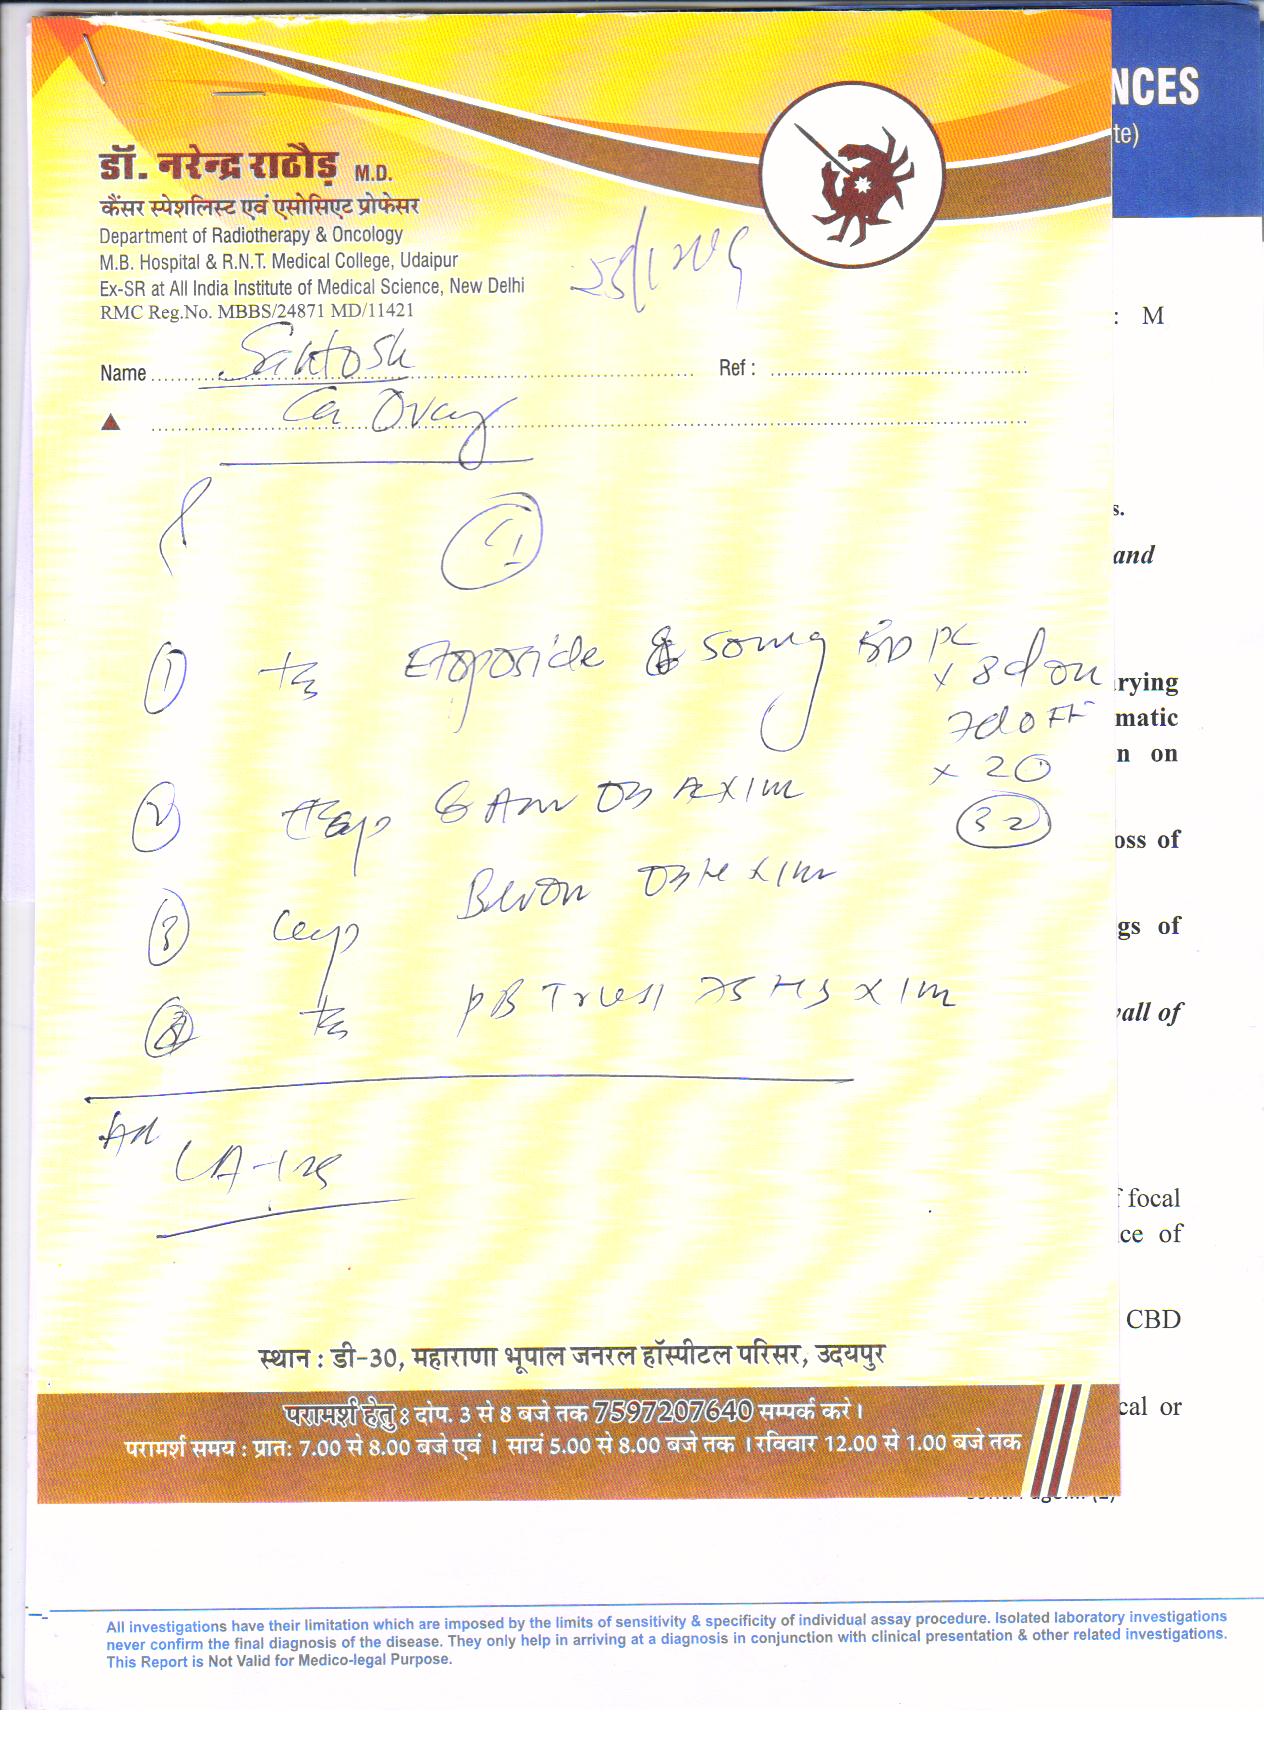 NCES
te)
डॉ. नरेन्द्र राठौड़ M.D.
कैंसर स्पेशलिस्ट एवं एसोसिएट प्रोफेसर
Department of Radiotherapy & Oncology
M.B. Hospital & R.N.T. Medical College, Udaipur
Ex-SR at All India Institute of Medical Science, New Delhi
RMC Reg.No. MBBS/24871 MD/11421
: M
Name Santosh Ref :
Ca Ovary
s.
and
1
① Etoposide 50mg BD PC
x 8d on
7d off
x 20
32
rying
matic
n on
② Cap x 1m
oss of
③ Cap Bevon x 1m
gs of
④ HS x 1m
all of
Ad
CA-125
f focal
ce of
CBD
cal or
स्थान : डी-30, महाराणा भूपाल जनरल हॉस्पीटल परिसर, उदयपुर
परामर्श हेतु : दोप. 3 से 8 बजे तक 7597207640 सम्पर्क करे।
परामर्श समय : प्रातः 7.00 से 8.00 बजे एवं । सायं 5.00 से 8.00 बजे तक । रविवार 12.00 से 1.00 बजे तक
All investigations have their limitation which are imposed by the limits of sensitivity & specificity of individual assay procedure. Isolated laboratory investigations
never confirm the final diagnosis of the disease. They only help in arriving at a diagnosis in conjunction with clinical presentation & other related investigations.
This Report is Not Valid for Medico-legal Purpose.